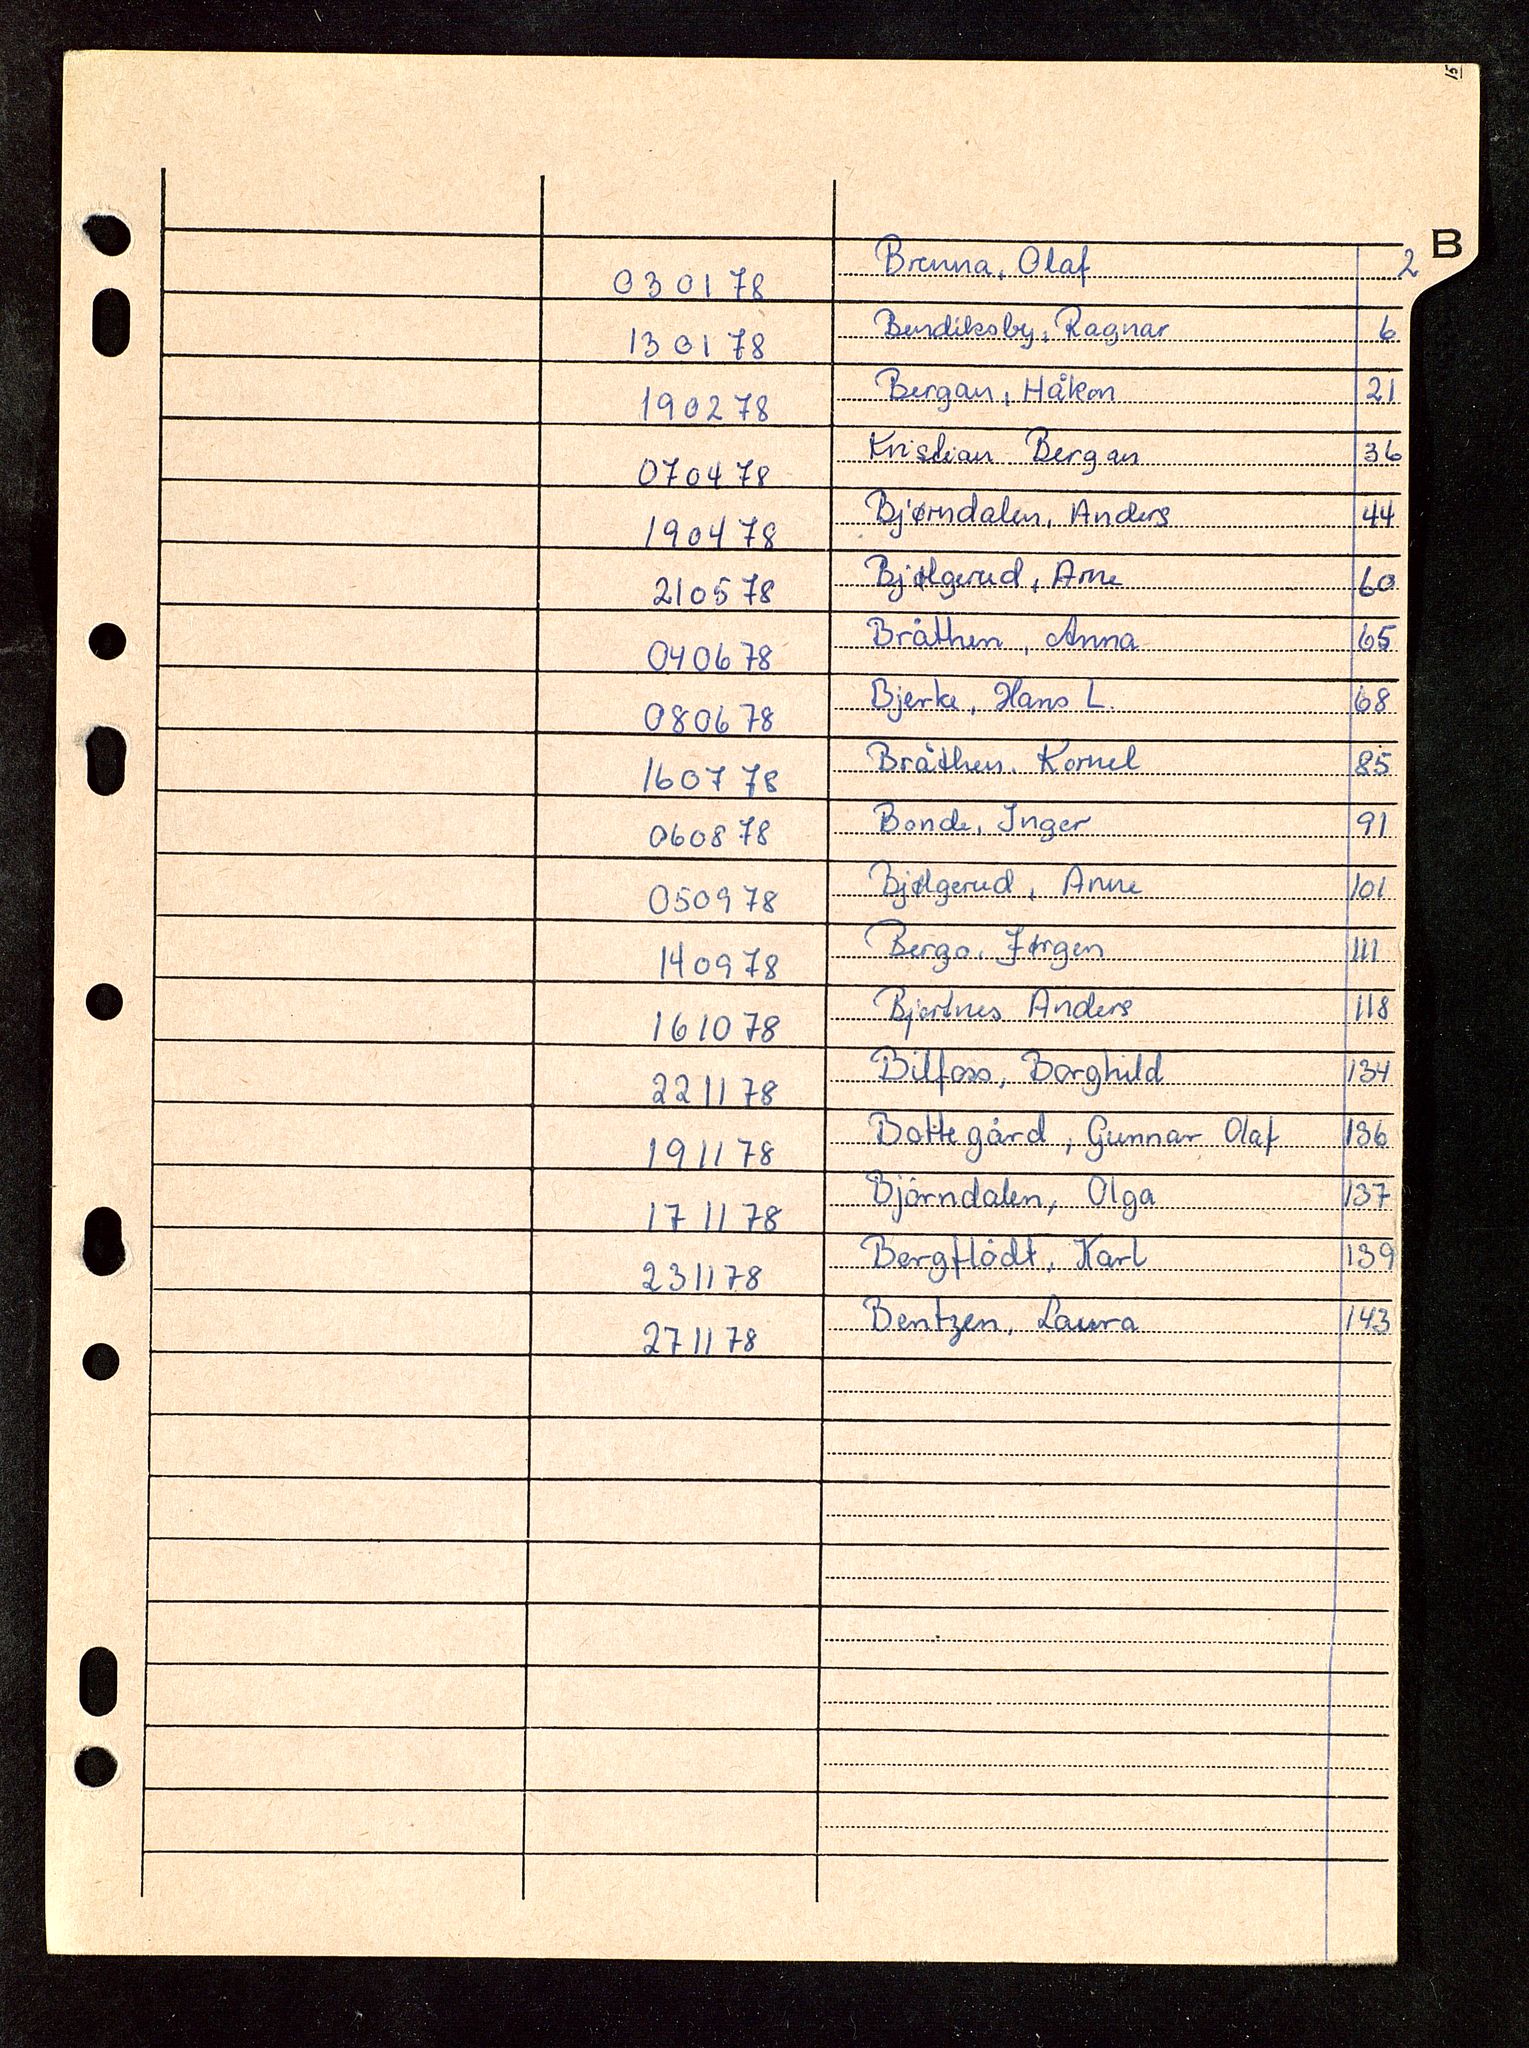 15
B
030178 Brenna, Olaf 2
130178 Bendiksby, Ragnar 6
190278 Bergan, Håkon 21
070478 Kristian Bergan 36
190478 Bjørndalen, Anders 44
210578 Bjølgerud, Arne 60
040678 Bråthen, Anna 65
080678 Bjerke, Hans L. 68
160778 Bråthen, Kornel 85
060878 Bonde, Inger 91
050978 Bjølgerud, Anne 101
140978 Bergo, Jørgen 111
161078 Bjertnes Anders 118
221178 Bilfoss, Borghild 134
191178 Bottegård, Gunnar Olaf 136
171178 Bjørndalen, Olga 137
231178 Bergflødt, Karl 139
271178 Bentzen, Laura 143